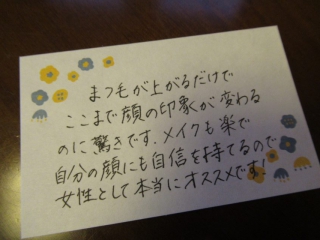 まつ毛が上がるだけで
ここまで顔の印象が変わる
のに驚きです.メイクも楽で
自分の顔にも自信を持てるので
女性として本当にオススメです!